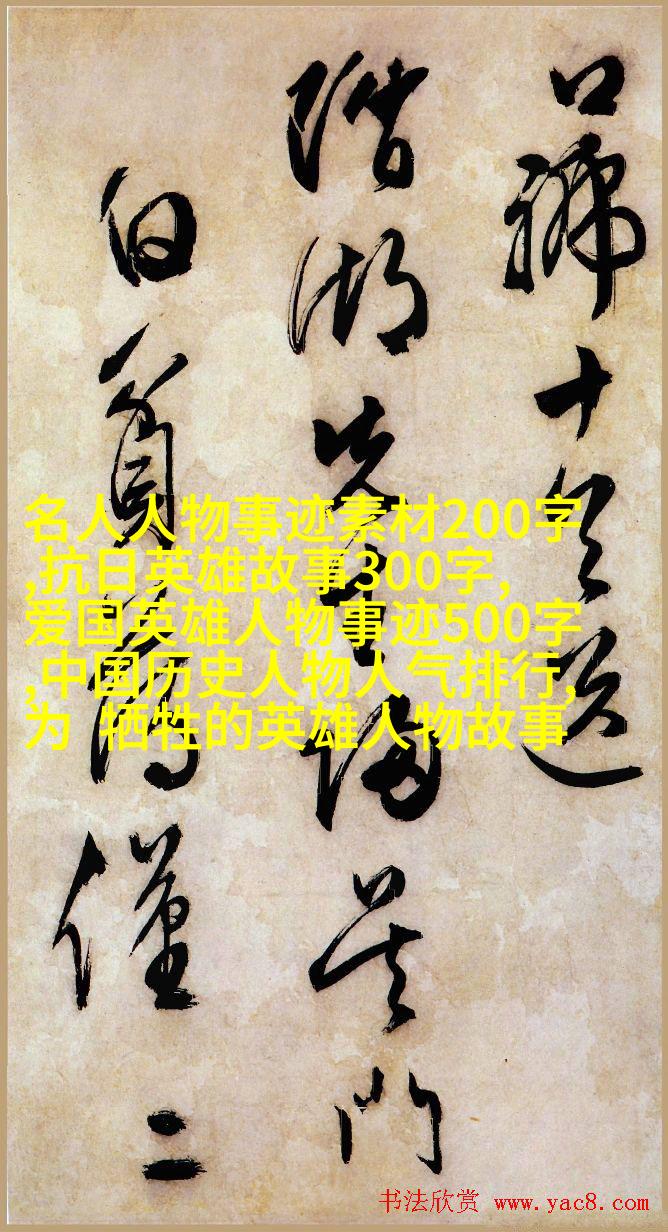 口號十送
湖先生歸吳門
僅二
名人人物事迹素材200字
,抗日英雄故事300字,
爱国英雄人物事迹500字
,中国历史人物人气排行,
为 牺牲的英雄人物故事
书法欣赏 www.yac8.com